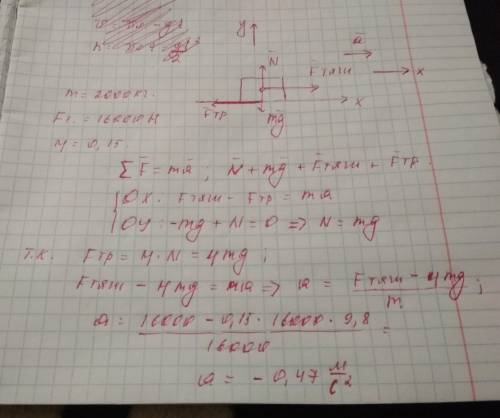 y
a
N
Fтяги
x
x
Fтр
mg
m = 2000 кг.
Fт. = 16000 Н
M = 0,15
ΣF = ma ; N + mg + Fтяги + Fтр.
OX: Fтяги - Fтр = ma
OY: -mg + N = 0 => N = mg
Т.К. Fтр = M · N = Mmg ;
Fтяги - Mmg = ma => a = Fтяги - Mmg / m ;
a = 16000 - 0,15 · 16000 · 9,8 / 16000 =
a = - 0,47 м/с²